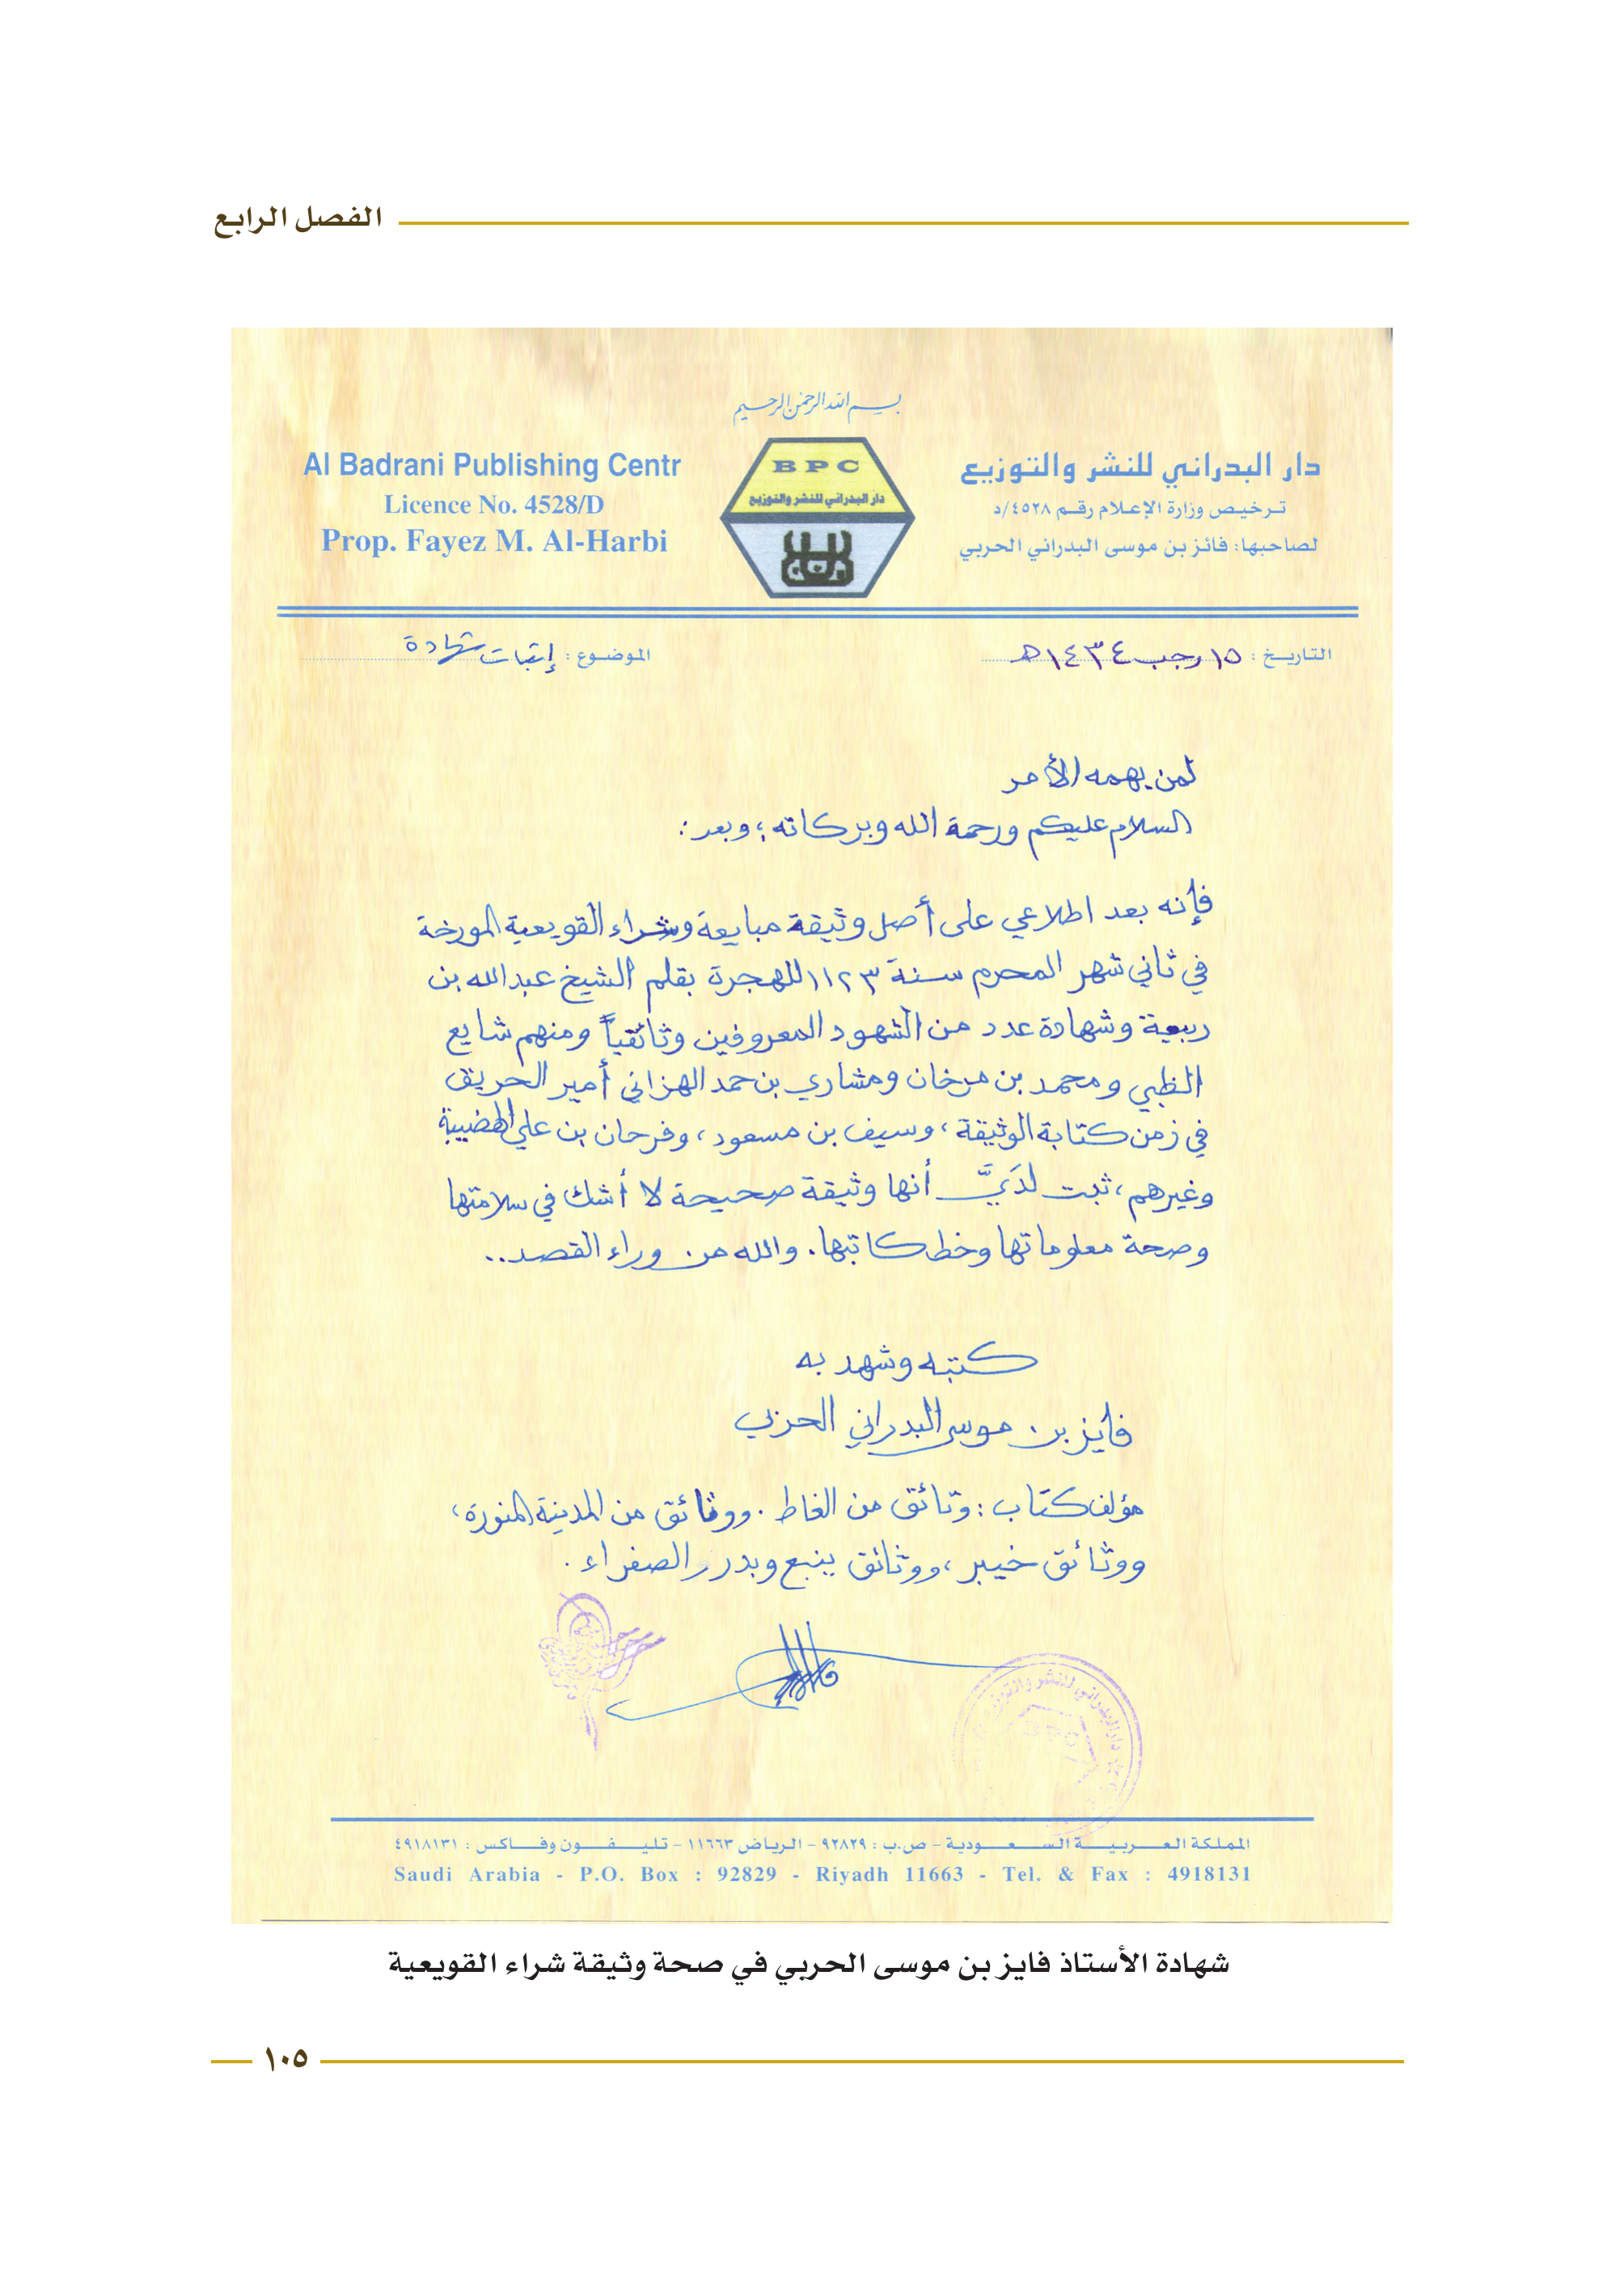 الفصل الرابع
بسم الله الرحمن الرحيم
Al Badrani Publishing Centr
Licence No. 4528/D
Prop. Fayez M. Al-Harbi
BPC
دار البدراني للنشر والتوزيع
دار البدراني للنشر والتوزيع
ترخيص وزارة الإعلام رقم ٤٥٢٨/د
لصاحبها: فائز بن موسى البدراني الحربي
التاريخ : ١٥ رجب ١٤٣٤هـ
الموضوع : إثبات شهادة
لمن يهمه الأمر
السلام عليكم ورحمة الله وبركاته؛ وبعد:
فإنه بعد اطلاعي على أصل وثيقة مبايعة وشراء القويعية المورخة
في ثاني شهر المحرم سنة ١١٢٣ للهجرة بقلم الشيخ عبدالله بن
ربيعة وشهادة عدد من الشهود المعروفين وثائقياً ومنهم شايع
الظبي ومحمد بن مرخان ومشاري بن حمد الهزاني أمير الحريق
في زمن كتابة الوثيقة، وسيف بن مسعود، وفرحان بن علي الهضيبة
وغيرهم، ثبت لدَيَّ أنها وثيقة صحيحة لا أشك في سلامتها
وصحة معلوماتها وخط كاتبها. والله من وراء القصد..
كتبه وشهد به
فايز بن موسى البدراني الحربي
مؤلف كتاب: وثائق من الغاط. ووثائق من المدينة المنورة،
ووثائق خيبر، ووثائق ينبع وبدر والصفراء.
دار البدراني للنشر والتوزيع
المملكة العربية السعودية - ص.ب : ٩٢٨٢٩ - الرياض ١١٦٦٣ - تليفون وفاكس : ٤٩١٨١٣١
Saudi Arabia - P.O. Box : 92829 - Riyadh 11663 - Tel. & Fax : 4918131
شهادة الأستاذ فايز بن موسى الحربي في صحة وثيقة شراء القويعية
١٠٥